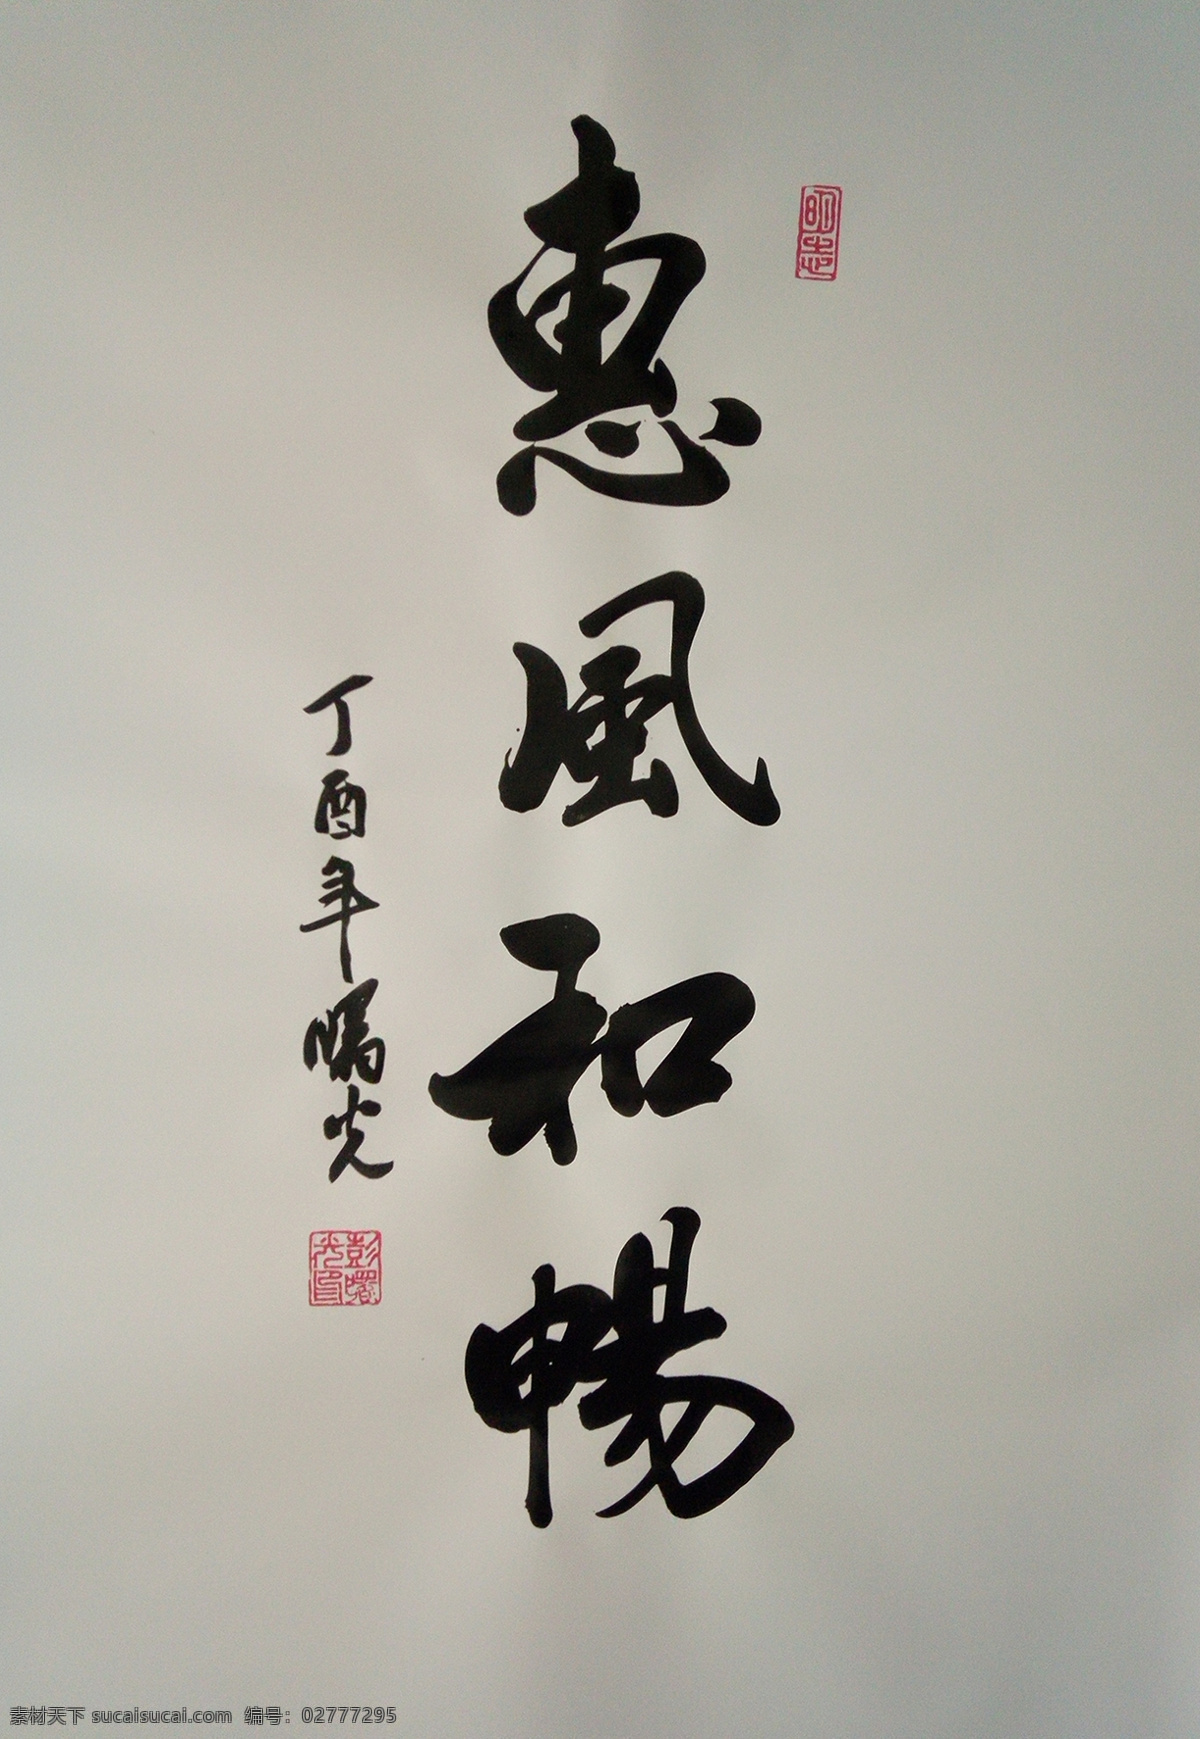 惠風和暢
丁酉年曙光
彭曙光印
素材天下 sucaisucai.com 编号：02777295